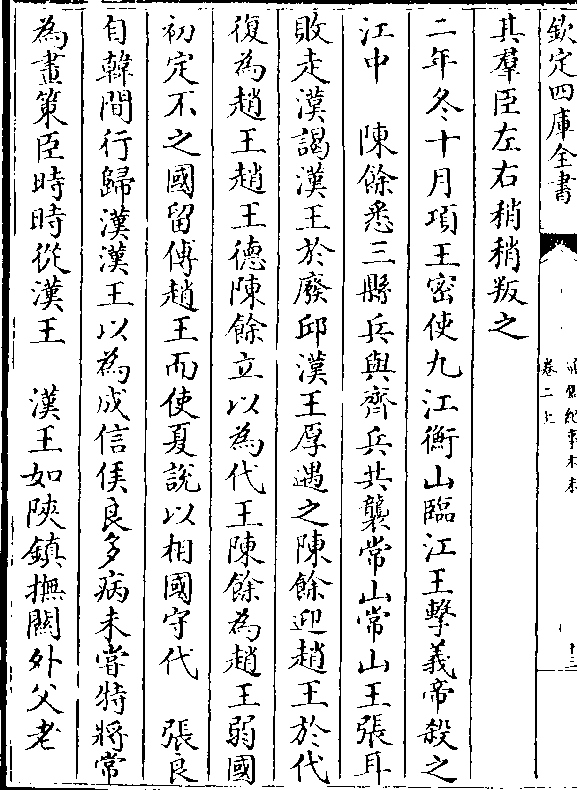 欽定四庫全書
卷二上
十三
其羣臣左右稍稍叛之
二年冬十月項王密使九江衡山臨江王擊義帝殺之
江中　陳餘悉三縣兵與齊兵共襲常山常山王張耳
敗走漢謁漢王於廢邱漢王厚遇之陳餘迎趙王於代
復為趙王趙王德陳餘立以為代王陳餘為趙王弱國
初定不之國留傅趙王而使夏說以相國守代　張良
自韓間行歸漢漢王以為成信侯良多病未嘗特將常
為畫策臣時時從漢王　漢王如陝鎮撫關外父老